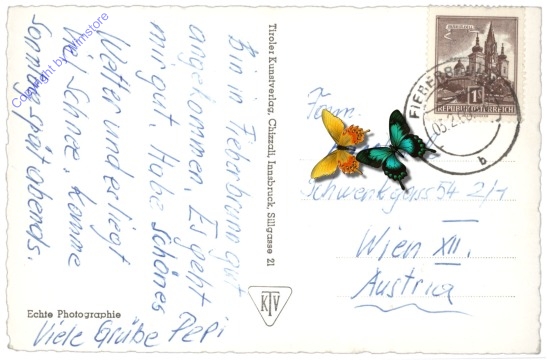 Bin in Fieberbrunn gut
angekommen. Es geht
mir gut. Habe schönes
Wetter und es liegt
viel Schnee. Komme
Sonntag spät abends.
Viele Grüße Pepi
Echte Photographie
Tiroler Kunstverlag, Chizzali, Innsbruck, Sillgasse 21
KTV
Fam.
Schwenkgasse 54 2/1
Wien XII.
Austria
MARIAZELL
1S
REPUBLIK ÖSTERREICH
FIEBERBRUNN
b
Copyright by filmstore